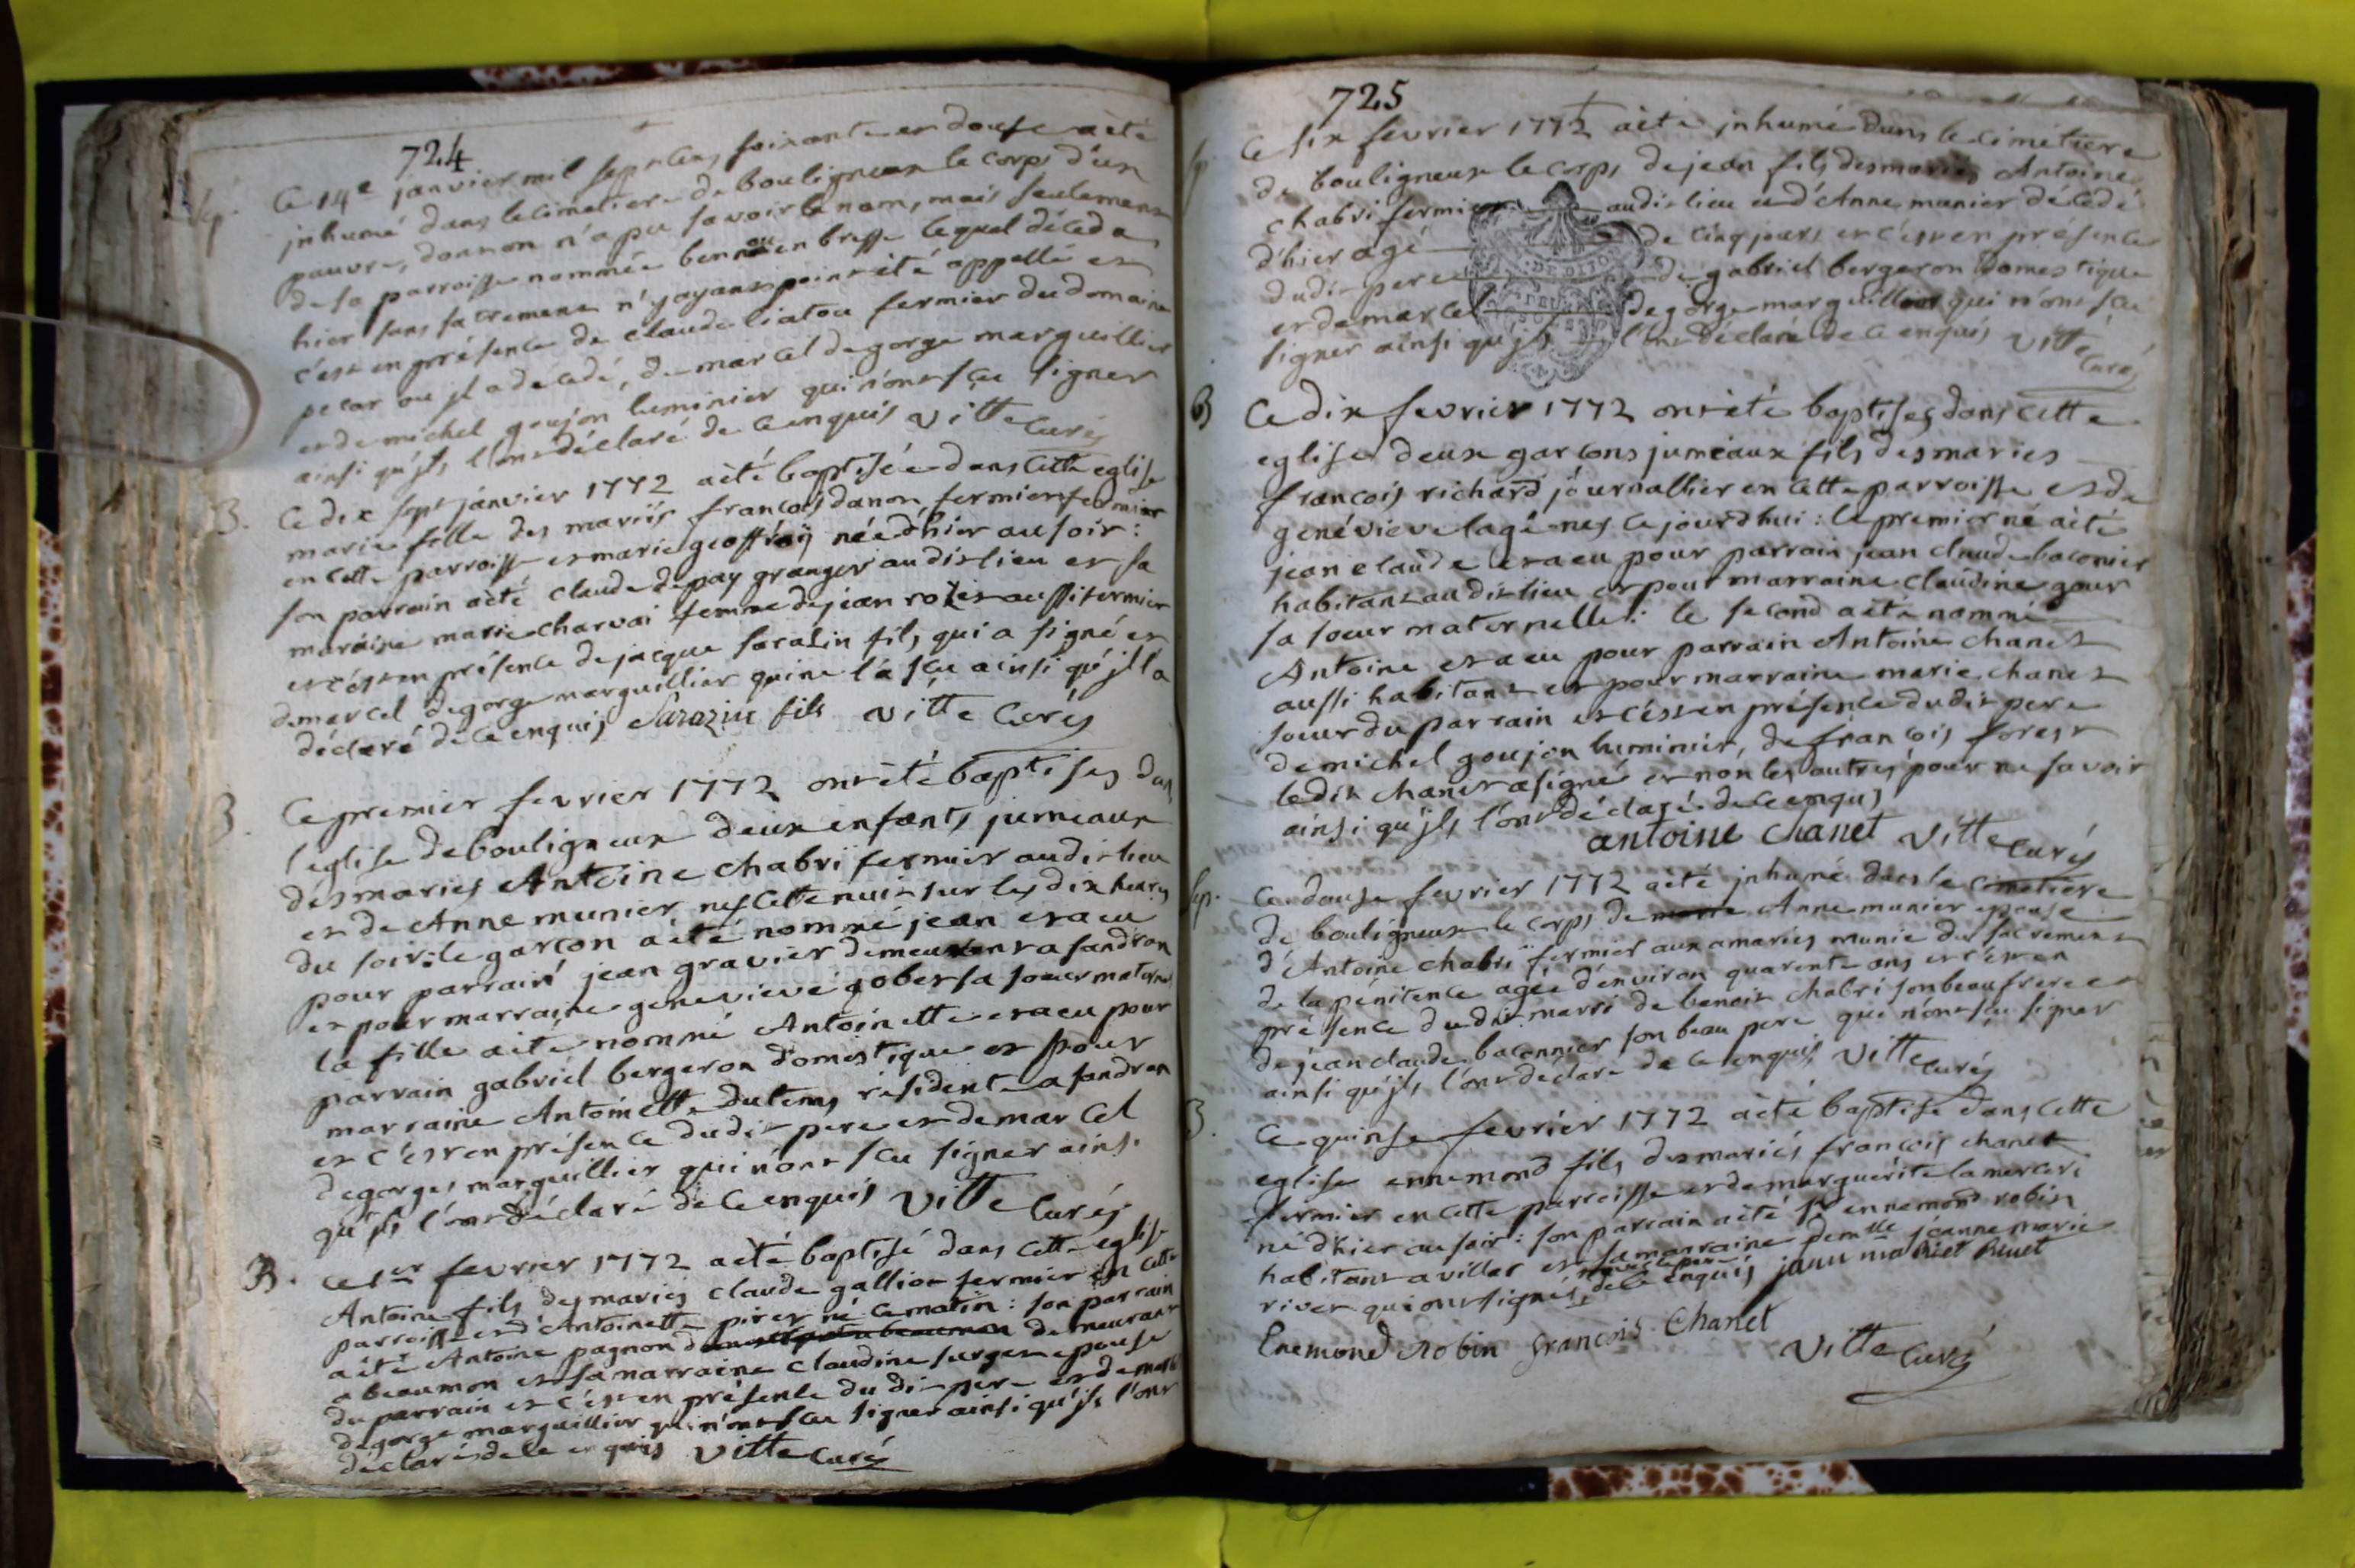 724
Sep. Ce 14e janvier mil sept cens soixante et douse a èté
inhumé dans le cimetiere de bouligneux le corps d'un
pauvre, dont on n'a pu savoir le nom, mais seulement
de sa parroisse nommée benno en bresse lequel déceda
hier sans sacremens n'y ayant point été appellé et
c'est en présence de claude liatou fermier du domaine
pecar ou jl a décedé, de marcel degorge marguillier
et de michel goujon luminier qui n'ont sçu signer
ainsi qu'jls l'ont déclaré de ce enquis Vitte Curé
B. Ce dix sept janvier 1772 a èté baptisée dans cette eglise
marie fille des mariés francois danon fermier
en cette parroisse et marie geoffray née d'hier au soir :
son parrain a èté claude dupuy granger audit lieu et sa
maraine marie charvai femme de jean rolet aussi fermier
et c'est en présence de jacque saralin fils, qui a signé et
de marcel degorge marguillier qui ne l'a sçu ainsi qu'jl l'a
déclaré de ce enquis Sarazin fils Vitte Curé
B. Ce premier fevrier 1772 ont èté baptises dans
l'eglise de bouligneux deux enfants jumeaux
des mariés Antoine chabri fermier audit lieu
et de Anne munier nés cette nuit sur les dix heures
du soir : le garcon a èté nommé jean et a eu
pour parrain jean gravier demeurant a sandran
et pour marraine genevieve gobet sa soeur maternel
la fille a èté nommé Antoinette et a eu pour
parrain gabriel bergeron domestique et pour
marraine Antoinette dutems residente a sandran
et c'est en présence dudit pere et de marcel
degorges marguillier qui n'ont sçu signer ainsi
qu'jls l'ont déclaré de ce enquis Vitte Curé
B. Ce 1er fevrier 1772 a èté baptisé dans cette eglise
Antoine fils des mariés claude gallion fermier en cette
parroisse et d'Antoinette piret né ce matin : son parrain
a èté Antoine pagnon demeurant
a beaumon et sa marraine claudine surget epouse
du parrain et c'est en présence du dit père et de marcel
degorge marguillier qui n'ont sçu signer ainsi qu'jls l'ont
déclaré de ce enquis Vitte Curé
725
Ce six fevrier 1772 a èté jnhumé dans le cimétiere
de bouligneux le corps de jean fils des mariés Antoine
chabri fermier audit lieu et d'Anne munier décédé
d'hier agé de cinq jours et c'est en présence
dudit pere de gabriel bergeron domestique
et de marcel degorge marguillier qui n'ont sçu
signer ainsi qu'jls l'ont déclaré de ce enquis Vitte
Curé
B Ce dix fevrier 1772 ont èté baptises dans cette
eglise deux garcons jumeaux fils des maries
francois richard journallier en cette parroisse et de
genévieve lagé nes ce jourd'hui : le premier né a èté
jean claude et a eu pour parrain jean claude baconier
habitant audit lieu et pour marraine claudine gour
sa soeur maternelle : le second a èté nommé
Antoine et a eu pour parrain Antoine chanet
aussi habitant et pour marraine marie chanet
soeur du parrain et c'est en présence dudit pere
de michel goujon luminier, de francois forest
ledit chanet a signé et non les autres pour ne savoir
ainsi qu'jls l'ont déclaré de ce enquis
antoine chanet Vitte Curé
Sep. Ce douse fevrier 1772 a èté jnhumé dans le cimetiere
de bouligneux le corps de Anne munier epouse
d'Antoine chabri fermier aux amaries munie du sacrement
de la pénitence agée d'environ quarente ans et c'est en
présence dudit marri de benoit chabri son beau frere et
de jean claude baconnier son beau pere qui n'ont sçu signer
ainsi qu'jls l'ont declaré de ce enquis Vitte Curé
B. Ce quinse fevrier 1772 a èté baptisé dans cette
eglise ennemond fils des mariés francois chanet
fermier en cette parroisse et de marguérite lamerceri
né d'hier au soir : son parrain a èté sr ennemond robin
habitant a villar et sa marraine demlle jeanne marie
rivet qui ont signés avec le pere de ce enquis
Enemond Robin francois Chanet
Vitte Curé